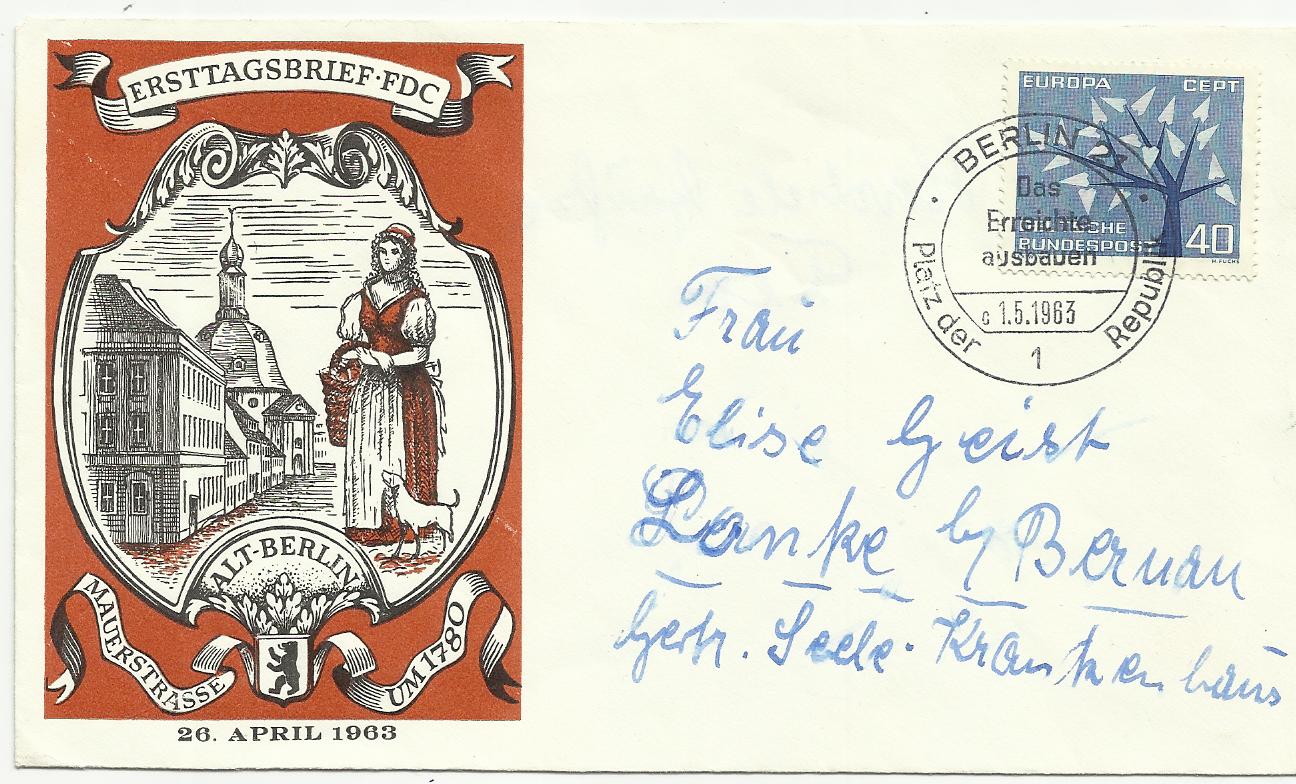 ERSTTAGSBRIEF·FDC
ALT-BERLIN
MAUERSTRASSE
UM 1780
26. APRIL 1963
EUROPA CEPT
CHE
BUNDESPOST
40
H. FUCHS
BERLIN 21
Das
Erreichte
ausbauen
c 1.5.1963
1
Platz der Republik
Frau
Elise Geist
Lanke b/ Bernau
Gertr. Seele-Krankenhaus